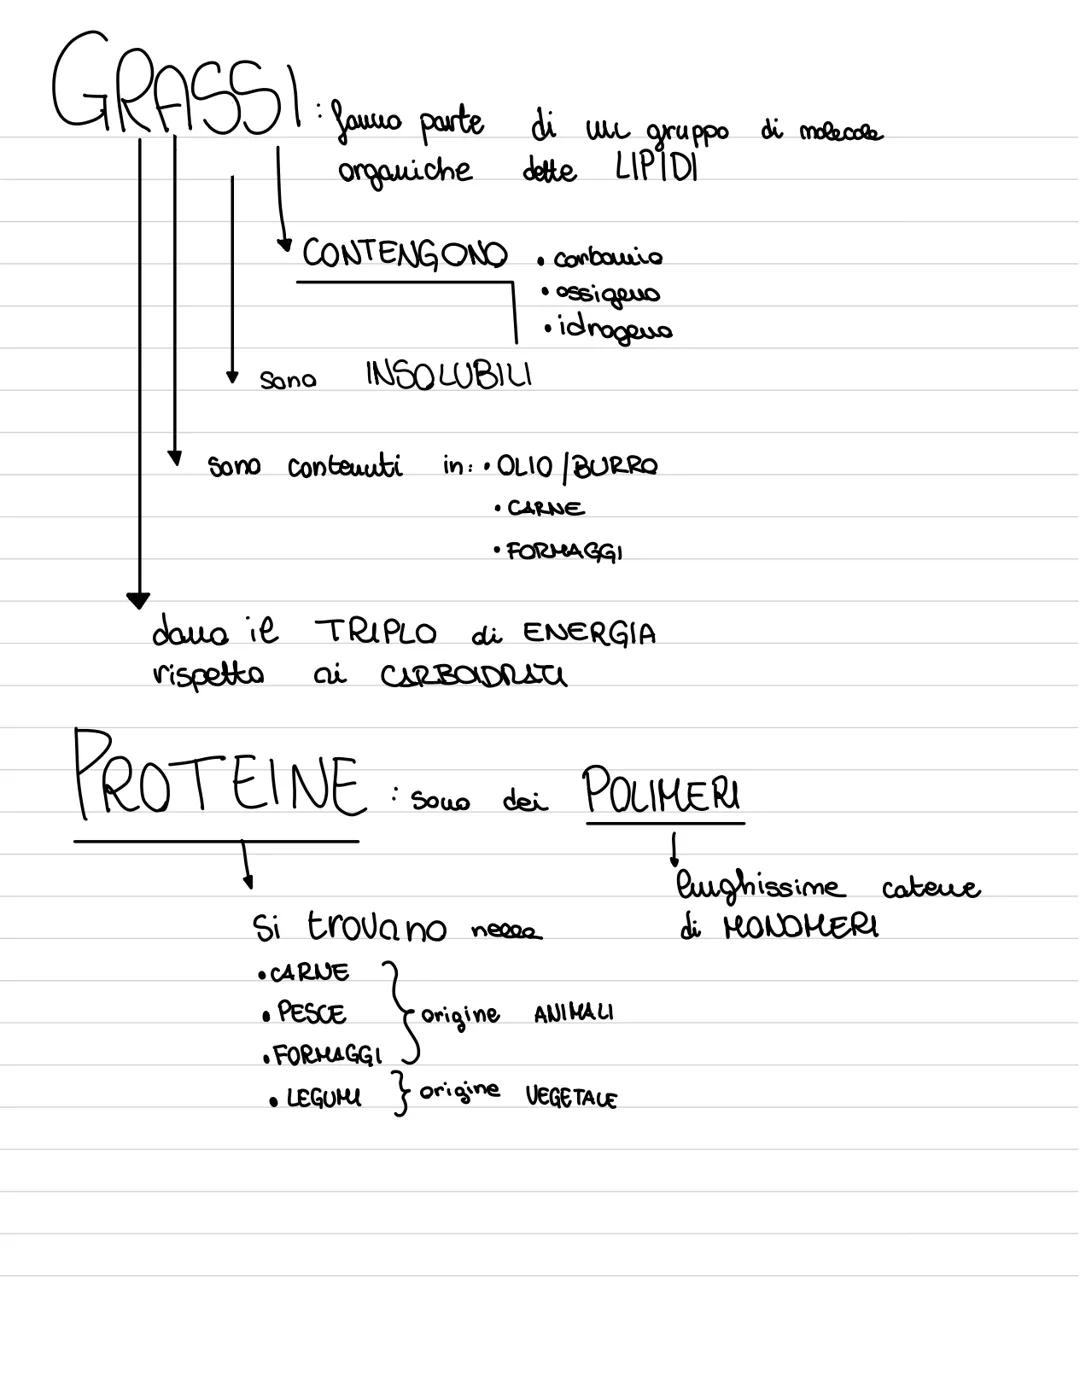 GRASSI : fanno parte di un gruppo di molecole
organiche dette LIPIDI
CONTENGONO • carbonio
• ossigeno
• idrogeno
sono INSOLUBILI
sono contenuti in: • OLIO/BURRO
• CARNE
• FORMAGGI
dano il TRIPLO di ENERGIA
rispetto ai CARBOIDRATI
PROTEINE : sono dei POLIMERI
lunghissime catene
di MONOMERI
Si trovano nella
• CARNE
• PESCE
• FORMAGGI
origine ANIMALI
• LEGUMI } origine VEGETALE